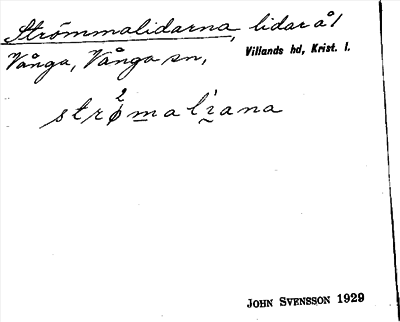 Strömmalidarna, lidar å 1
Vånga, Vånga sn, Villands hd, Krist. l.
strø2maliana
JOHN SVENSSON 1929